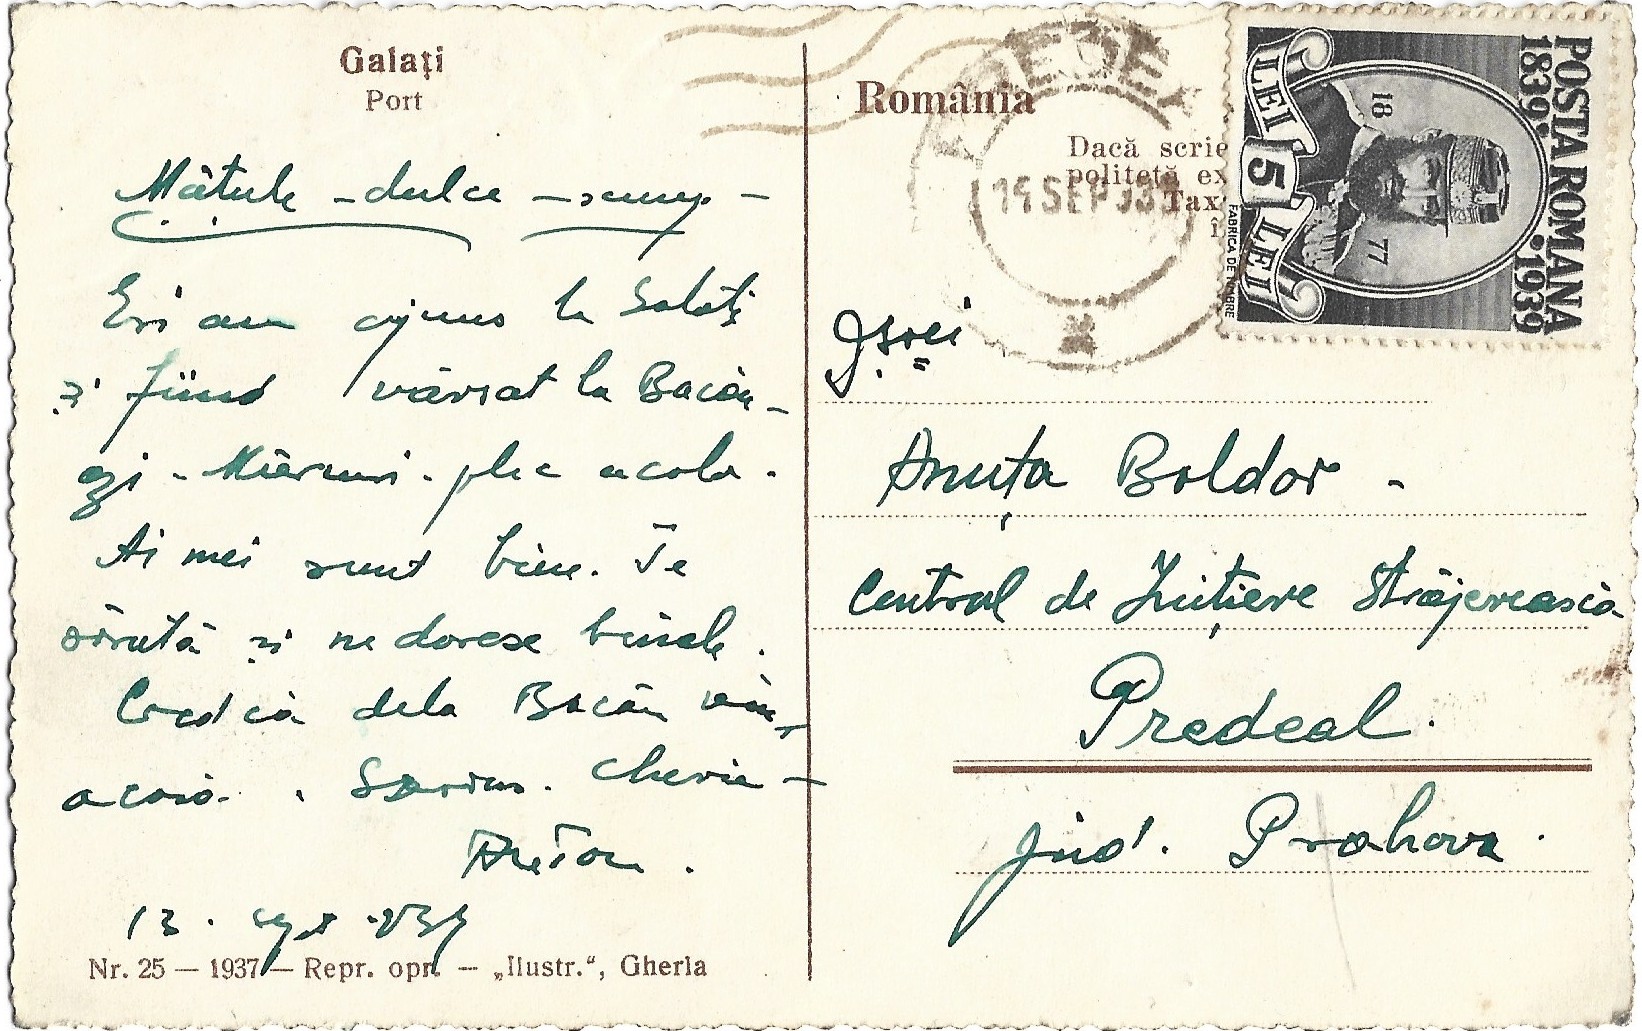 Galați
Port
Mătule - dulce - scump -
Eri am ajuns la Galați
și fiind vărsat la Bacău -
azi - Miercuri - plec acolo.
Ai mei sunt bine. Te
sărută și ne doresc binele.
Cred că dela Bacău vin
acasă. Servus. Cherie -
Anton.
13. sept. 939
Nr. 25 — 1937 — Repr. opr. — „Ilustr.“, Gherla
România
Dacă scrie
politeță ex
Tax
î
PREDEAL
14 SEP 939
POSTA ROMANA
1839 • 1939
18 77
LEI 5 LEI
FABRICA DE TIMBRE
Dșoei
Anuța Boldor -
Centrul de Inițiere Străjerească
Predeal.
Jud. Prahova.